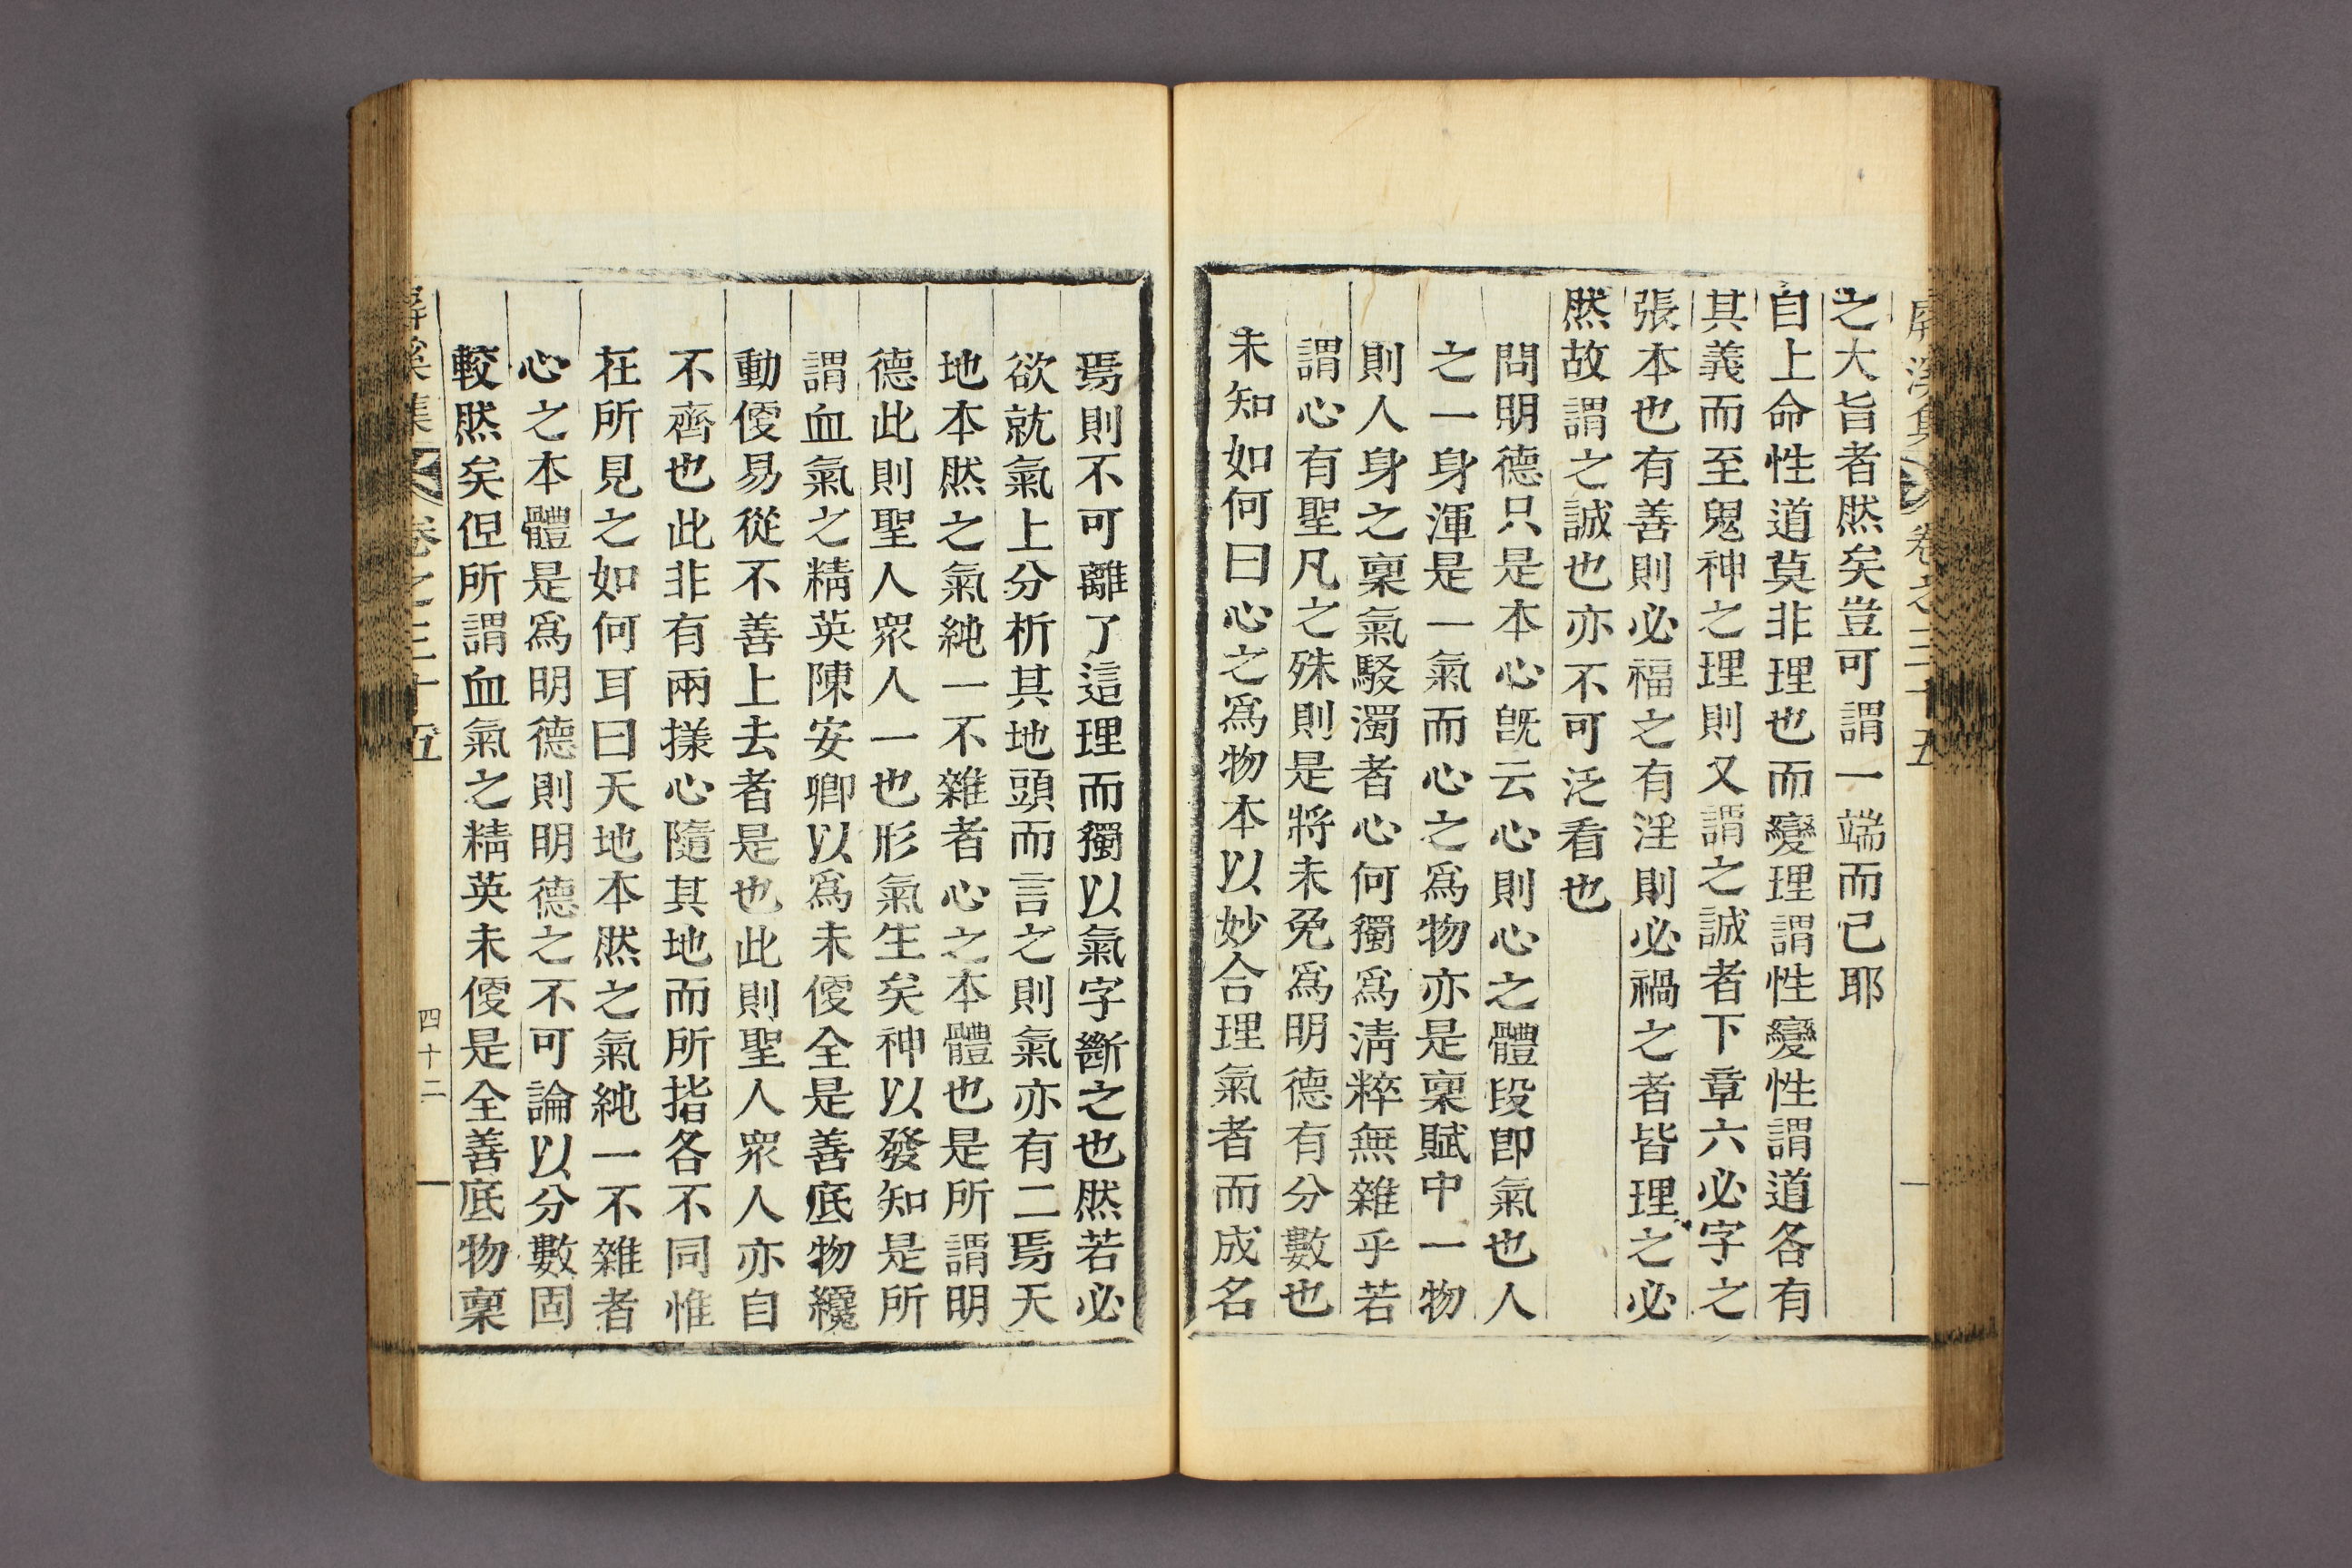 屏溪集 卷之三十五
之大旨者然矣豈可謂一端而已耶
自上命性道莫非理也而變理謂性變性謂道各有
其義而至鬼神之理則又謂之誠者下章六必字之
張本也有善則必福之有淫則必禍之者皆理之必
然故謂之誠也亦不可泛看也
問明德只是本心旣云心則心之體段卽氣也人
之一身渾是一氣而心之爲物亦是稟賦中一物
則人身之稟氣駁濁者心何獨爲淸粹無雜乎若
謂心有聖凡之殊則是將未免爲明德有分數也
未知如何曰心之爲物本以妙合理氣者而成名
焉則不可離了這理而獨以氣字斷之也然若必
欲就氣上分析其地頭而言之則氣亦有二焉天
地本然之氣純一不雜者心之本體也是所謂明
德此則聖人衆人一也形氣生矣神以發知是所
謂血氣之精英陳安卿以爲未便全是善底物纔
動便易從不善上去者是也此則聖人衆人亦自
不齊也此非有兩㨾心隨其地而所指各不同惟
在所見之如何耳曰天地本然之氣純一不雜者
心之本體是爲明德則明德之不可論以分數固
較然矣但所謂血氣之精英未便是全善底物稟
屏溪集 卷之三十五 四十二